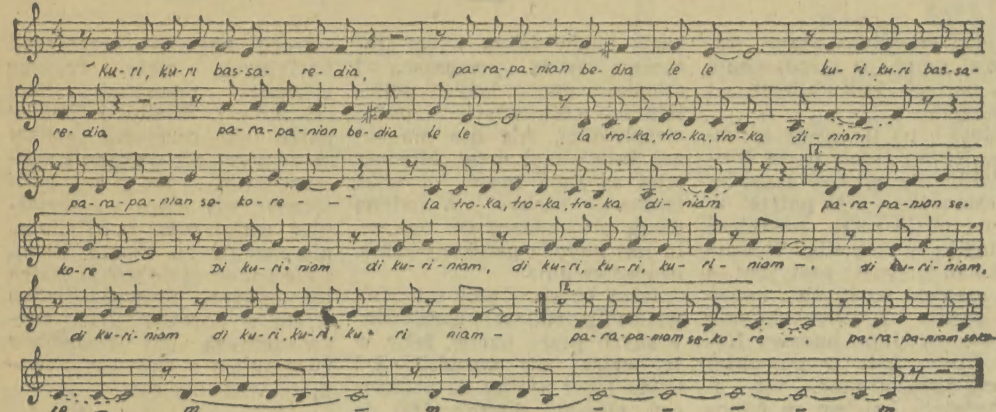 Ku-ri, ku-ri bas-sa- re-dia, pa-ra-pa-nian be-dia le le ku-ri, ku-ri bas-sa-
re-dia pa-ra-pa-nian be-dia le le la tro-ka, tro-ka, tro-ka di-niam
pa-ra-pa-nian se-ko-re- - la tro-ka, tro-ka, tro-ka di-niam 1. pa-ra-pa-nian se-
ko-re - Di ku-ri-niam di ku-ri-niam, di ku-ri, ku-ri, ku-ri-niam -, di ku-ri-niam,
di ku-ri-niam di ku-ri, ku-ri, ku-ri niam - 2. pa-ra-pa-niam se-ko-re -, pa-ra-pa-niam se-ko-
re - m - m - - - - m